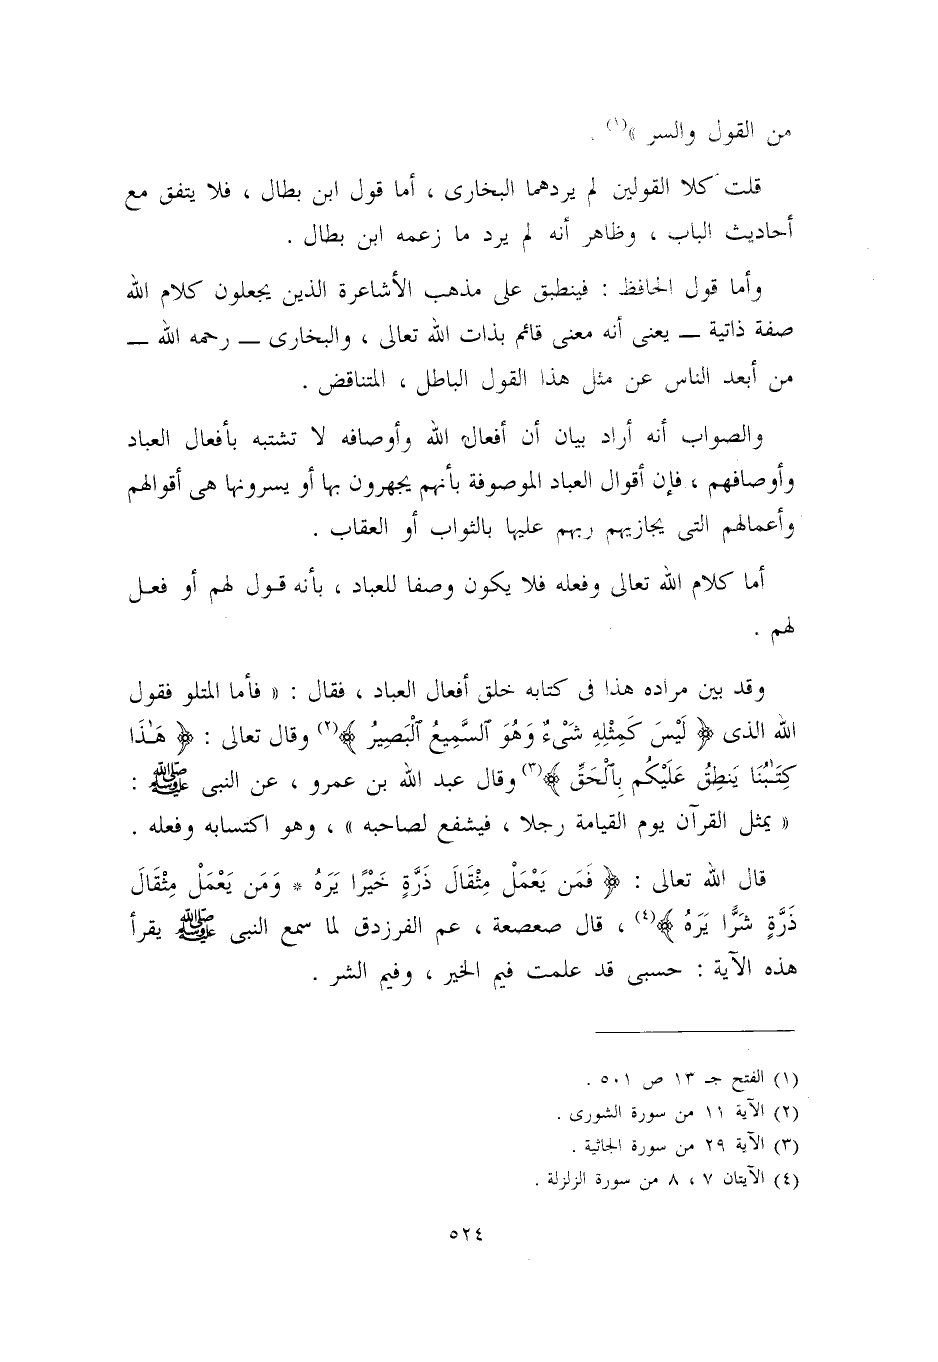 من القول والسر »(١) .
قلت كلا القولين لم يردهما البخارى ، أما قول ابن بطال ، فلا يتفق مع
أحاديث الباب ، وظاهر أنه لم يرد ما زعمه ابن بطال .
وأما قول الحافظ : فينطبق على مذهب الأشاعرة الذين يجعلون كلام الله
صفة ذاتية ــ يعنى أنه معنى قائم بذات الله تعالى ، والبخارى ــ رحمه الله ــ
من أبعد الناس عن مثل هذا القول الباطل ، المتناقض .
والصواب أنه أراد بيان أن أفعال الله وأوصافه لا تشتبه بأفعال العباد
وأوصافهم ، فإن أقوال العباد الموصوفة بأنهم يجهرون بها أو يسرونها هى أقوالهم
وأعمالهم التى يجازيهم ربهم عليها بالثواب أو العقاب .
أما كلام الله تعالى وفعله فلا يكون وصفا للعباد ، بأنه قول لهم أو فعل
لهم .
وقد بين مراده هذا فى كتابه خلق أفعال العباد ، فقال : « فأما المتلو فقول
الله الذى ﴿ لَيْسَ كَمِثْلِهِ شَىْءٌ وَهُوَ ٱلسَّمِيعُ ٱلْبَصِيرُ ﴾(٢) وقال تعالى : ﴿ هَٰذَا
كِتَٰبُنَا يَنطِقُ عَلَيْكُم بِٱلْحَقِّ ﴾(٣) وقال عبد الله بن عمرو ، عن النبى ﷺ :
« يمثل القرآن يوم القيامة رجلا ، فيشفع لصاحبه » ، وهو اكتسابه وفعله .
قال الله تعالى : ﴿ فَمَن يَعْمَلْ مِثْقَالَ ذَرَّةٍ خَيْرًا يَرَهُ * وَمَن يَعْمَلْ مِثْقَالَ
ذَرَّةٍ شَرًّا يَرَهُ ﴾(٤) ، قال صعصعة ، عم الفرزدق لما سمع النبى ﷺ يقرأ
هذه الآية : حسبى قد علمت فيم الخير ، وفيم الشر .
(١) الفتح جـ ١٣ ص ٥٠١ .
(٢) الآية ١١ من سورة الشورى .
(٣) الآية ٢٩ من سورة الجاثية .
(٤) الآيتان ٧ ، ٨ من سورة الزلزلة .
٥٢٤